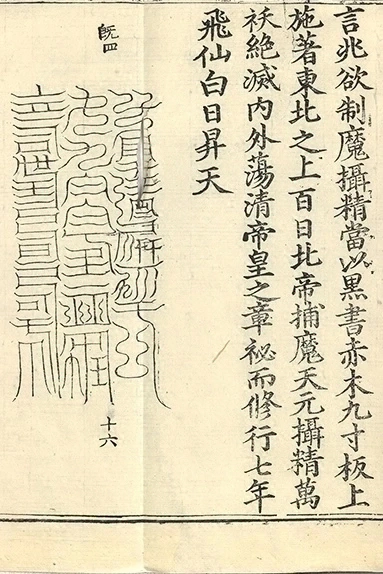 言兆欲制魔攝精當以黒書赤木九寸板上
施著東北之上百日北帝捕魔天元攝精萬
祅絶滅内外蕩清帝皇之章祕而修行七年
飛仙白日昇天
既四
十六